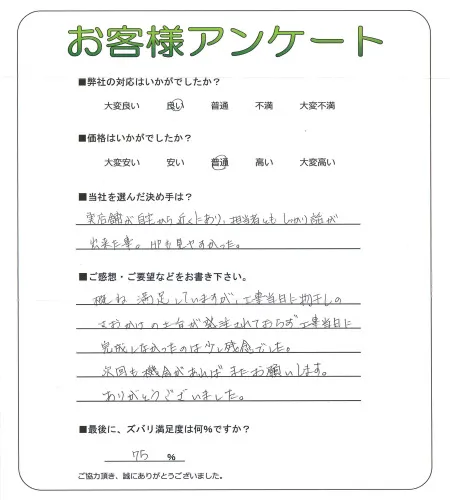 お客様アンケート
■弊社の対応はいかがでしたか？
大変良い 良い 普通 不満 大変不満
■価格はいかがでしたか？
大変安い 安い 普通 高い 大変高い
■当社を選んだ決め手は？
実店舗が自宅から近くにあり、担当者ともしっかり話が
出来た事。HPも見やすかった。
■ご感想・ご要望などをお書き下さい。
概ね満足していますが、工事当日に物干しの
さおかけの土台が発注されておらず工事当日に
完成しなかったのは少し残念でした。
次回も機会があればまたお願いします。
ありがとうございました。
■最後に、ズバリ満足度は何%ですか？
75 %
ご協力頂き、誠にありがとうございました。